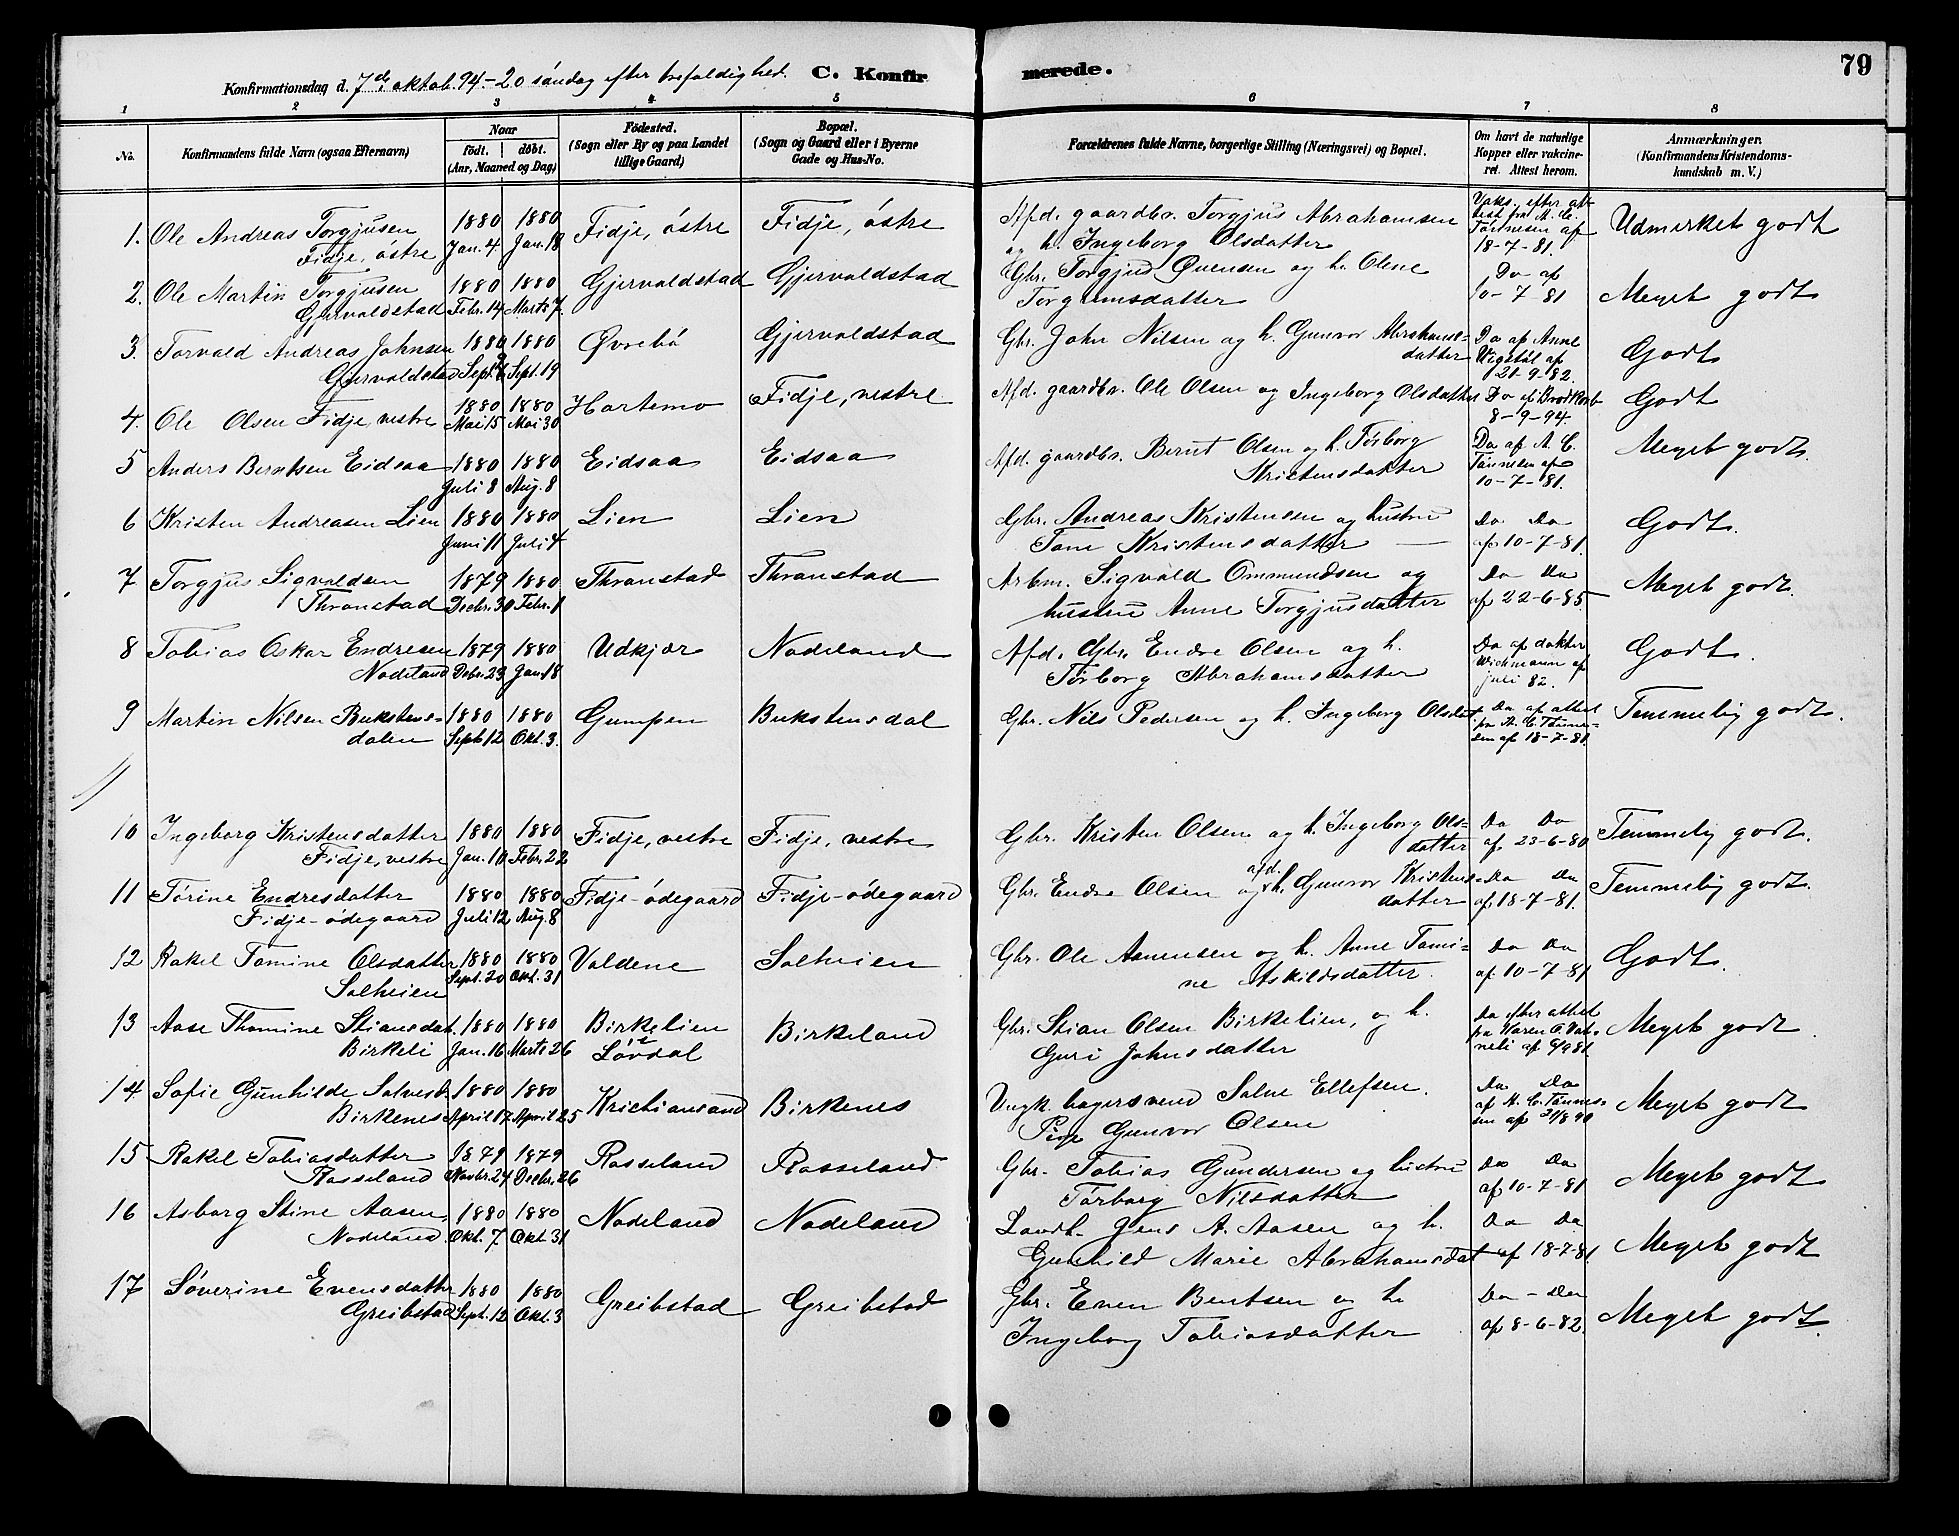 Konfirmationsdag d. 7de oktob. 94. – 20 söndag efter trefoldighed. C. Konfirmerede. 79
1 2 3 4 5 6 7 8
No. Konfirmandens fulde Navn (ogsaa Efternavn) Naar födt. döbt. (Aar, Maaned og Dag) Födested. (Sogn eller By og paa Landet tillige Gaard) Bopæl. (Sogn og Gaard eller i Byerne Gade og Hus-No. Forældrenes fulde Navne, borgerlige Stilling (Næringsvei) og Bopæl. Om havt de naturlige Kopper eller vakcineret. Attest herom. Anmærkninger. (Konfirmandens Kristendomskundskab m. V.)
1. Ole Andreas Torgjusen 1880 1880 Fidje, östre Fidje, östre Afd. gaardbr. Torgjus Abrahamsen Vaks. efter attest fra A. C.
Fidje, östre Jan. 4 Jan. 18 og h. Ingeborg Olsdatter Tönnesen af 18-7-81. Udmerket godt
2. Ole Martin Torgjusen 1880 1880 Gjervaldstad Gjervaldstad Gbr. Torgjus Evensen og h. Olene Do af
Gjervaldstad Febr. 14 Marts 7. Torgrimsdatter 10-7-81 Meget godt
3. Torvald Andreas Johnsen 1880 1880 Øvrebö Gjervaldstad Gbr. John Nilsen og h. Gunvor Abrahams- Do af Anne
Gjervaldstad Sept. Sept. 19 datter af 21-9-82. Godt
4. Ole Olsen Fidje, vestre 1880 1880 Hortemo Fidje, vestre Afd. gaardbr. Ole Olsen og Ingeborg Olsdatter Do af Brodkorb Godt
Mai 15 Mai 30 8-9-94.
5 Anders Berntsen Eidsaa 1880 1880 Eidsaa Eidsaa Afd. gaardbr. Bernt Olsen og h. Törborg Do af A. C. Meget godt.
Juli 8 Aug. 8 Kristensdatter Tönnesen af 10-7-81.
6 Kristen Andreasen Lien 1880 1880 Lien Lien Gbr. Andreas Kristensen og hustru Do Do Godt.
Juni 11 Juli 4 Tone Kristensdatter af 10-7-81.
7 Torgjus Sigvaldsen 1879 1880 Thronstad Thronstad Arbm. Sigvald Ommundsen og Do Do Meget godt.
Thronstad Decbr. 30 Febr. 1 hustru Anne Torgjusdatter af 22-6-85
8 Tobias Oskar Endresen 1879 1880 Udkjær Nodeland Afd. Gbr. Endre Olsen og h. Do af doktor Godt.
Nodeland Debr. 23 Jan. 18 Törborg Abrahamsdatter Wichmann af juli 82.
9 Martin Nilsen Bukstens- 1880 1880 Gumpen Bukstensdal Gbr. Nils Pedersen og h. Ingeborg Olsdat Do af attest Temmelig godt.
dalen Sept 12 Okt. 3. fra A. C. Tönnesen af 18-7-81.
10 Ingeborg Kristensdatter 1880 1880 Fidje, vestre Fidje, vestre Gbr. Kristen Olsen og h. Ingeborg Ols- Do Do Temmelig godt.
Fidje, vestre Jan. 10 Febr. 22 datter af 23-6-80
11 Törine Endresdatter 1880 1880 Fidje-ödegaard Fidje-ödegaard Gbr. Endre Olsen og afd. h. Gunvor Kristens- Do Do Temmelig godt.
Fidje-ödegaard Juli 12 Aug. 8 datter af 18-7-81.
12 Rakel Tomine Olsdatter 1880 1880 Valdene Solheien Gbr. Ole Asmensen og h. Anne Tomi- Do Do Godt.
Solheien Sept. 20 Okt. 31 ne Askildsdatter. af 10-7-81
13 Aase Thomine Stiansdat. 1880 1880 Birkelien Birkeland Gbr. Stian Olsen Birkelien, og h. Do efter attest Meget godt
Birkeli Jan. 16 Marts 26 i Lövdal Guri Johnsdatter fra Karen af 6/9 81
14 Sofie Gunhilde Salvesd. 1880 1880 Kristiansand Birkenes Ungk. bagersvend Salve Ellefsen. Do Do Meget godt
Birkenes April 17 April 25 Pige Gunvor Olsen af A. C. Tönnesen af 21/8 90
15 Rakel Tobiasdatter 1879 1879 Rosseland Rosseland Gbr. Tobias Gundersen og hustru Do Do Meget godt
Rosseland Novbr. 24 Decbr. 26 Törborg Nilsdatter af 10-7-81
16 Asborg Stine Aasen, 1880 1880 Nodeland Nodeland Landh. Jens A. Aasen og h. Do Do Meget godt
Nodeland. Okt. 7 Okt. 31 Gunhild Marie Abrahamsdat af 18-7-81.
17 Söverine Evensdatter 1880 1880 Greibstad Greibstad Gbr. Even Bentsen og h. Do - Do Meget godt.
Greibstad Sept. 12 Okt. 3 Ingeborg Tobiasdatter af 8-6-82.